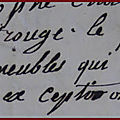 rouge. le
meubles qui
ex ception